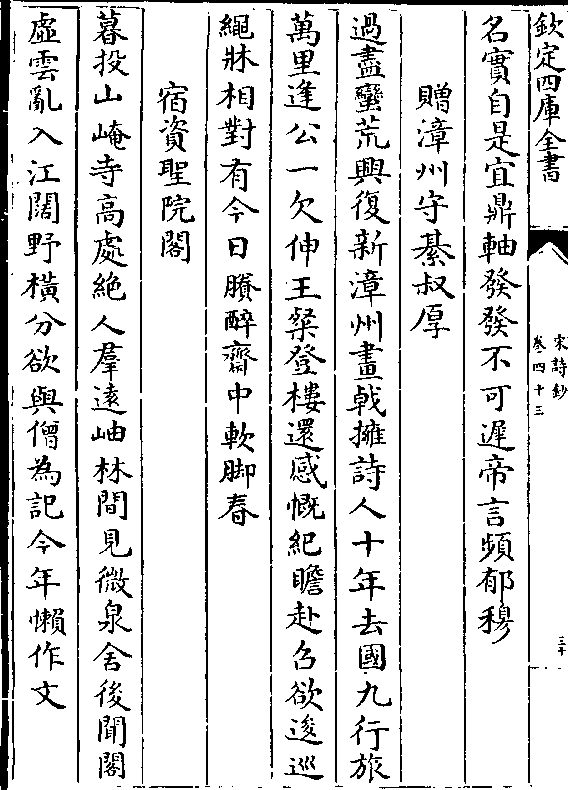 欽定四庫全書
宋詩鈔
卷四十三
三十
名實自是宜鼎軸發發不可遲帝言頻郁穆
贈漳州守綦叔厚
過盡蠻荒興復新漳州畫戟擁詩人十年去國九行旅
萬里逢公一欠伸王粲登樓還感慨紀瞻赴召欲逡巡
繩牀相對有今日賸醉齋中軟脚春
宿資聖院閣
暮投山崦寺高處絶人羣遠岫林間見微泉舍後聞閣
虛雲亂入江闊野橫分欲與僧為記今年懶作文